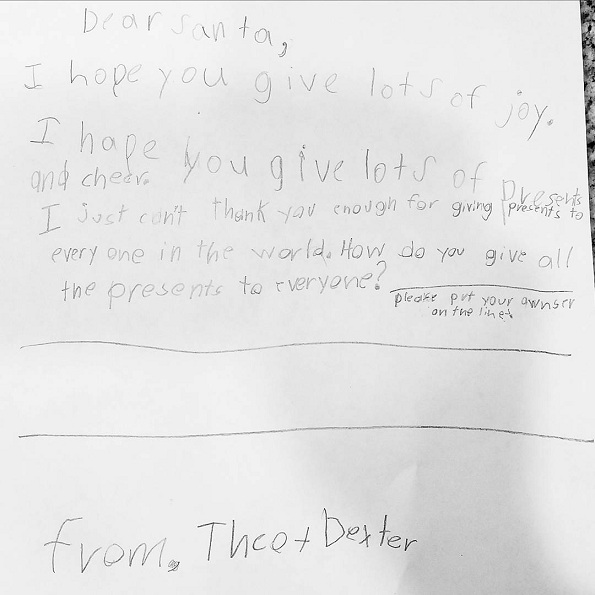 Dear Santa,
I hope you give lots of joy.
I hape you give lots of presents
and cheer.
I just can't thank you enough for giving presents to
every one in the world. How do you give all
the presents to everyone?
please put your awnser
on the line.
from, Theo + Dexter